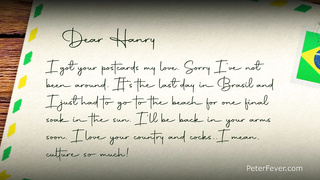 Dear Hanry
I got your postcards my love. Sorry I've not
been around. It's the last day in Brasil and
I just had to go to the beach for one final
soak in the sun. I'll be back in your arms
soon. I love your country and cocks..I mean..
culture so much!
PeterFever.com